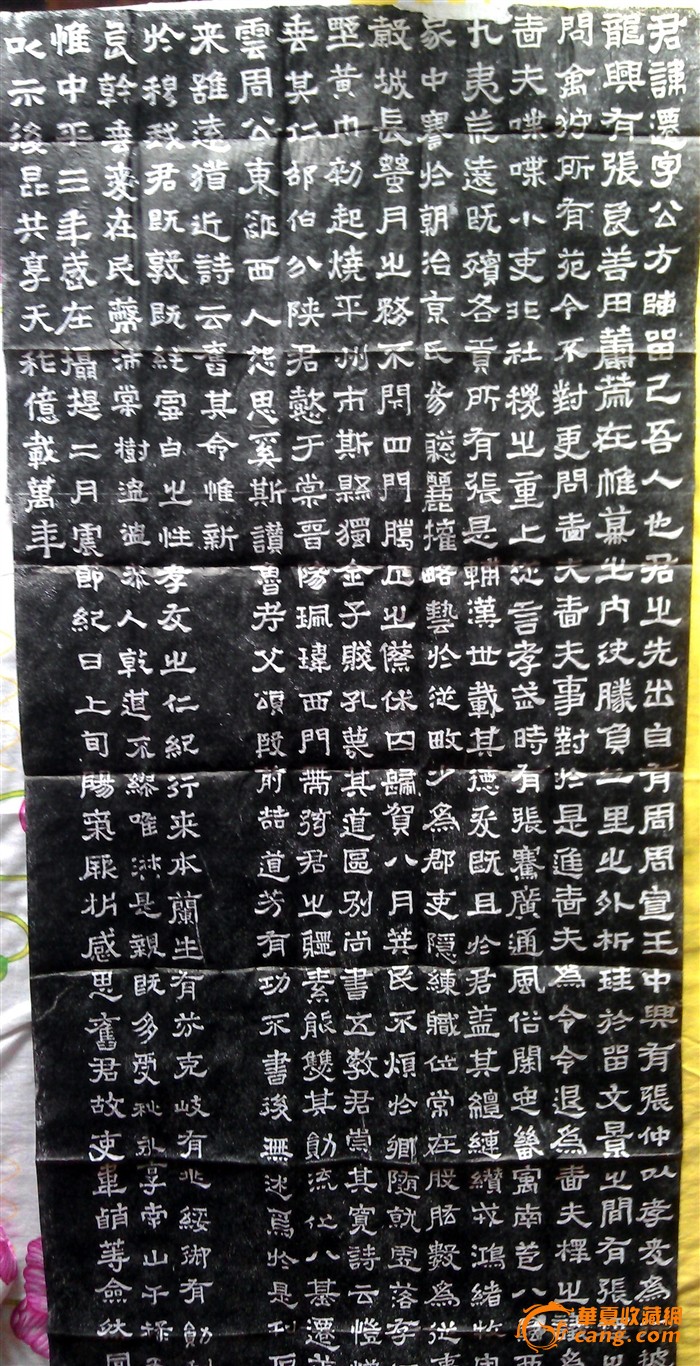 君諱遷字公方陳留己吾人也君之先出自有周周宣王中興有張仲以孝友為行披
龍興有張良善用籌策在帷幕之內決勝負千里之外析珪於留文景之間有張
問禽狩所有苑令不對更問嗇夫嗇夫事對於是進嗇夫為令令退為嗇夫釋之議為
嗇夫喋喋小吏非社稷之重上從言孝武時有張騫廣通風俗開定畿寓南苞八蠻西
九夷荒遠既殯各貢所有張是輔漢世載其德爰既且於君蓋其繵縺纘戎鴻緒牧守
家中謇於朝治京氏易聰麗權略藝於從畋少為郡吏隱練職位常在股肱數為從事
穀城長蠶月之務不閉四門臘正之際休囚歸賀八月筭民不煩於鄉隨就虛落存恤
野黃巾初起燒平城市斯縣獨全子賤孔蔑其道區別尚書五教君崇其寬詩云愷悌
垂其仁邵伯分陝君懿于棠晉陽珮瑋西門帶弦君之體素能雙其勛流化八基遷蕩
雲周公東征西人怨思奚斯讚魯考父頌殷前喆遺芳有功不書後無述焉於是刊石
來雖遠猶近詩云舊其命惟新
於穆我君既敦既純雪白之性孝友之仁紀行來本蘭生有芬克岐有兆綏御有勛
良幹垂愛在民蔽沛棠樹溫溫恭人乾道不繆唯淑是親既多受祉永享南山干祿無
惟中平三年歲在攝提二月震節紀日上旬陽氣厥析感思舊君故吏韋萌等僉然同
以示後昆共享天祚億載萬年
華夏收藏網
cang.com